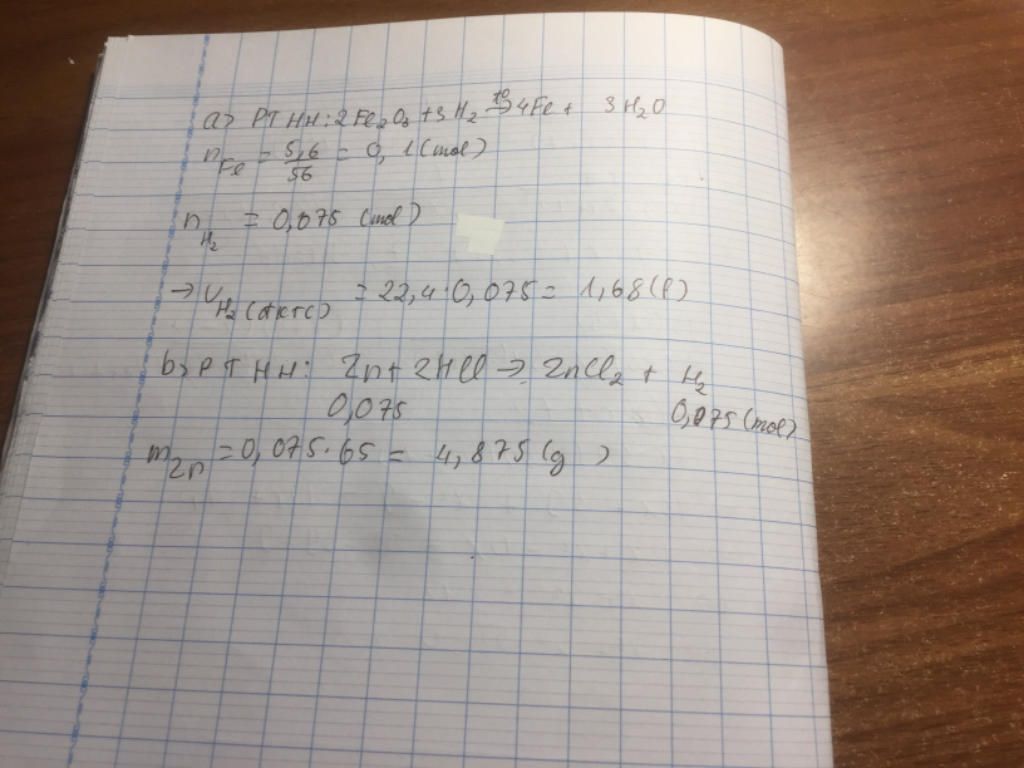 a> PTHH: 2Fe2O3 + 3H2 t° → 4Fe + 3H2O
nFe = 5,6/56 = 0,1 (mol)
nH2 = 0,075 (mol)
→ VH2 (đktc) = 22,4 · 0,075 = 1,68 (l)
b> PTHH: Zn + 2HCl → ZnCl2 + H2
0,075 0,075 (mol)
mZn = 0,075 · 65 = 4,875 (g)